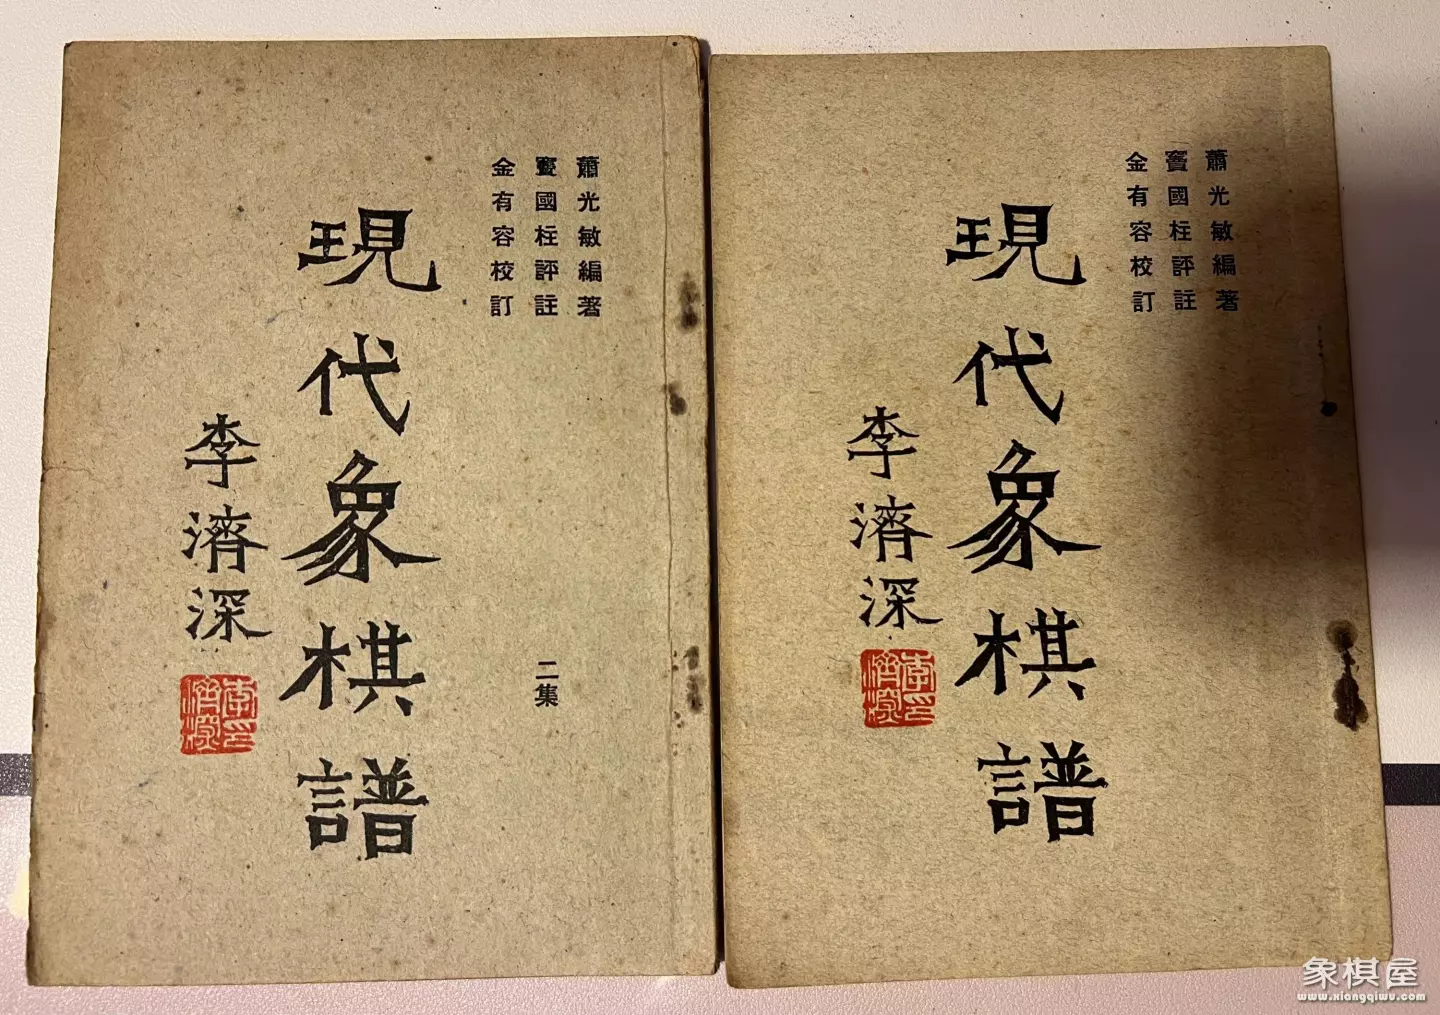 蕭光敏編著
竇國柱評註
金有容校訂
現代象棋譜
二集
李濟深
蕭光敏編著
竇國柱評註
金有容校訂
現代象棋譜
李濟深
象棋屋
www.xiangqiwu.com